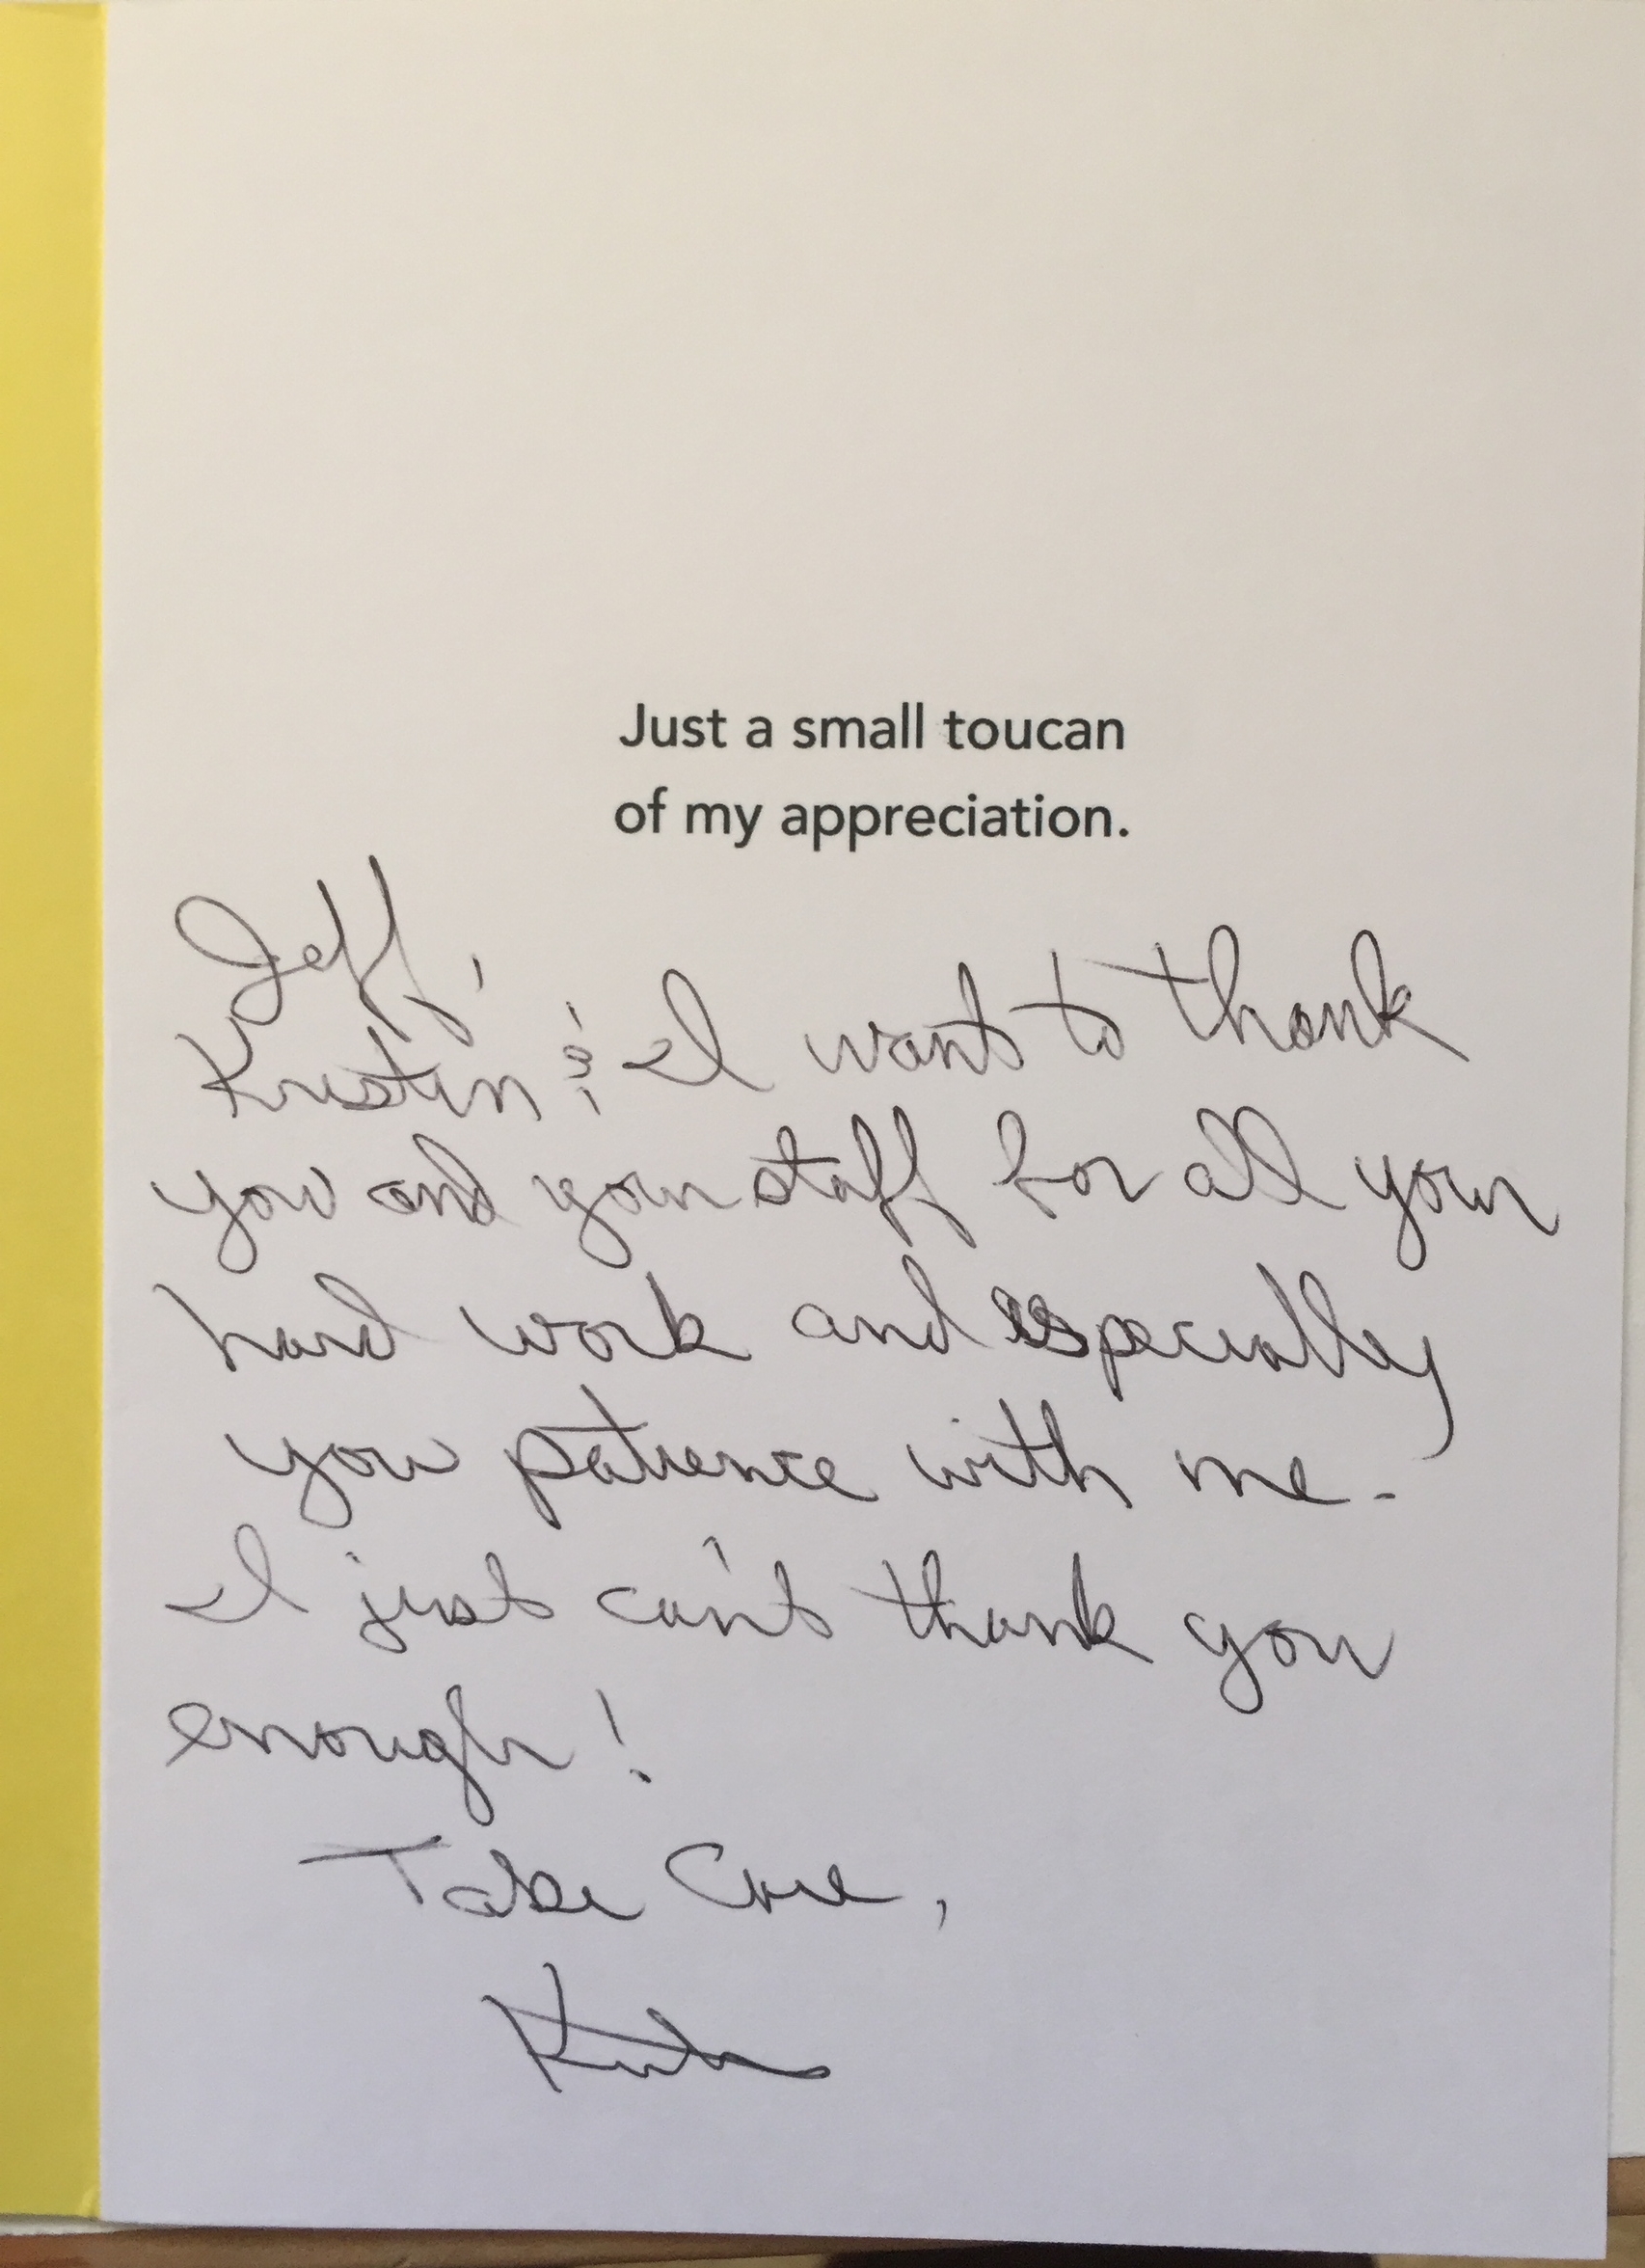 Just a small toucan
of my appreciation.
Jeff,
Kristin & I want to thank
you and your staff for all your
hard work and especially
you patience with me.
I just can't thank you
enough!
Take Care,